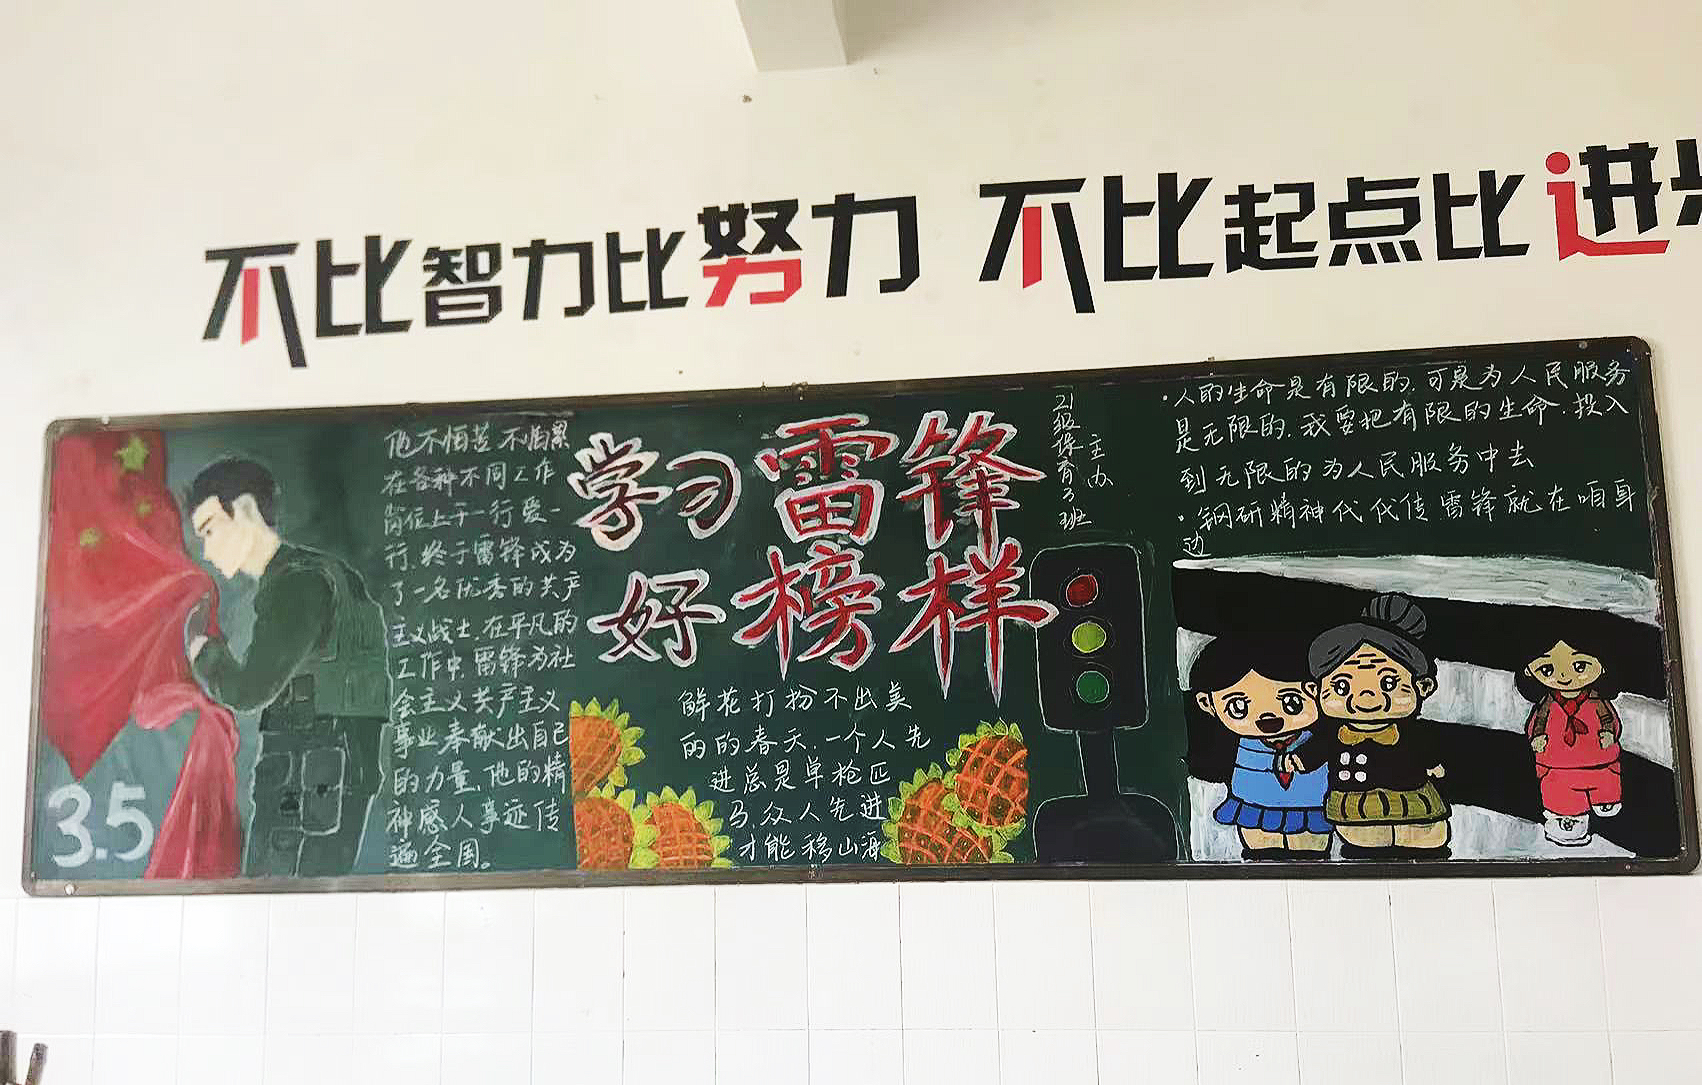 不比智力比努力 不比起点比进步
他不怕苦不怕累
在各种不同工作
岗位上干一行爱一
行.终于雷锋成为
了一名优秀的共产
主义战士.在平凡的
工作中.雷锋为社
会主义共产主义
事业奉献出自己
的力量.他的精
神感人事迹传
遍全国。
3.5
学习雷锋
好榜样
21级保育3班
主办
鲜花打扮不出美
丽的春天.一个人先
进总是单枪匹
马众人先进
才能移山海
·人的生命是有限的.可是为人民服务
是无限的.我要把有限的生命.投入
到无限的为人民服务中去
·钢研精神代代传 雷锋就在咱身
边